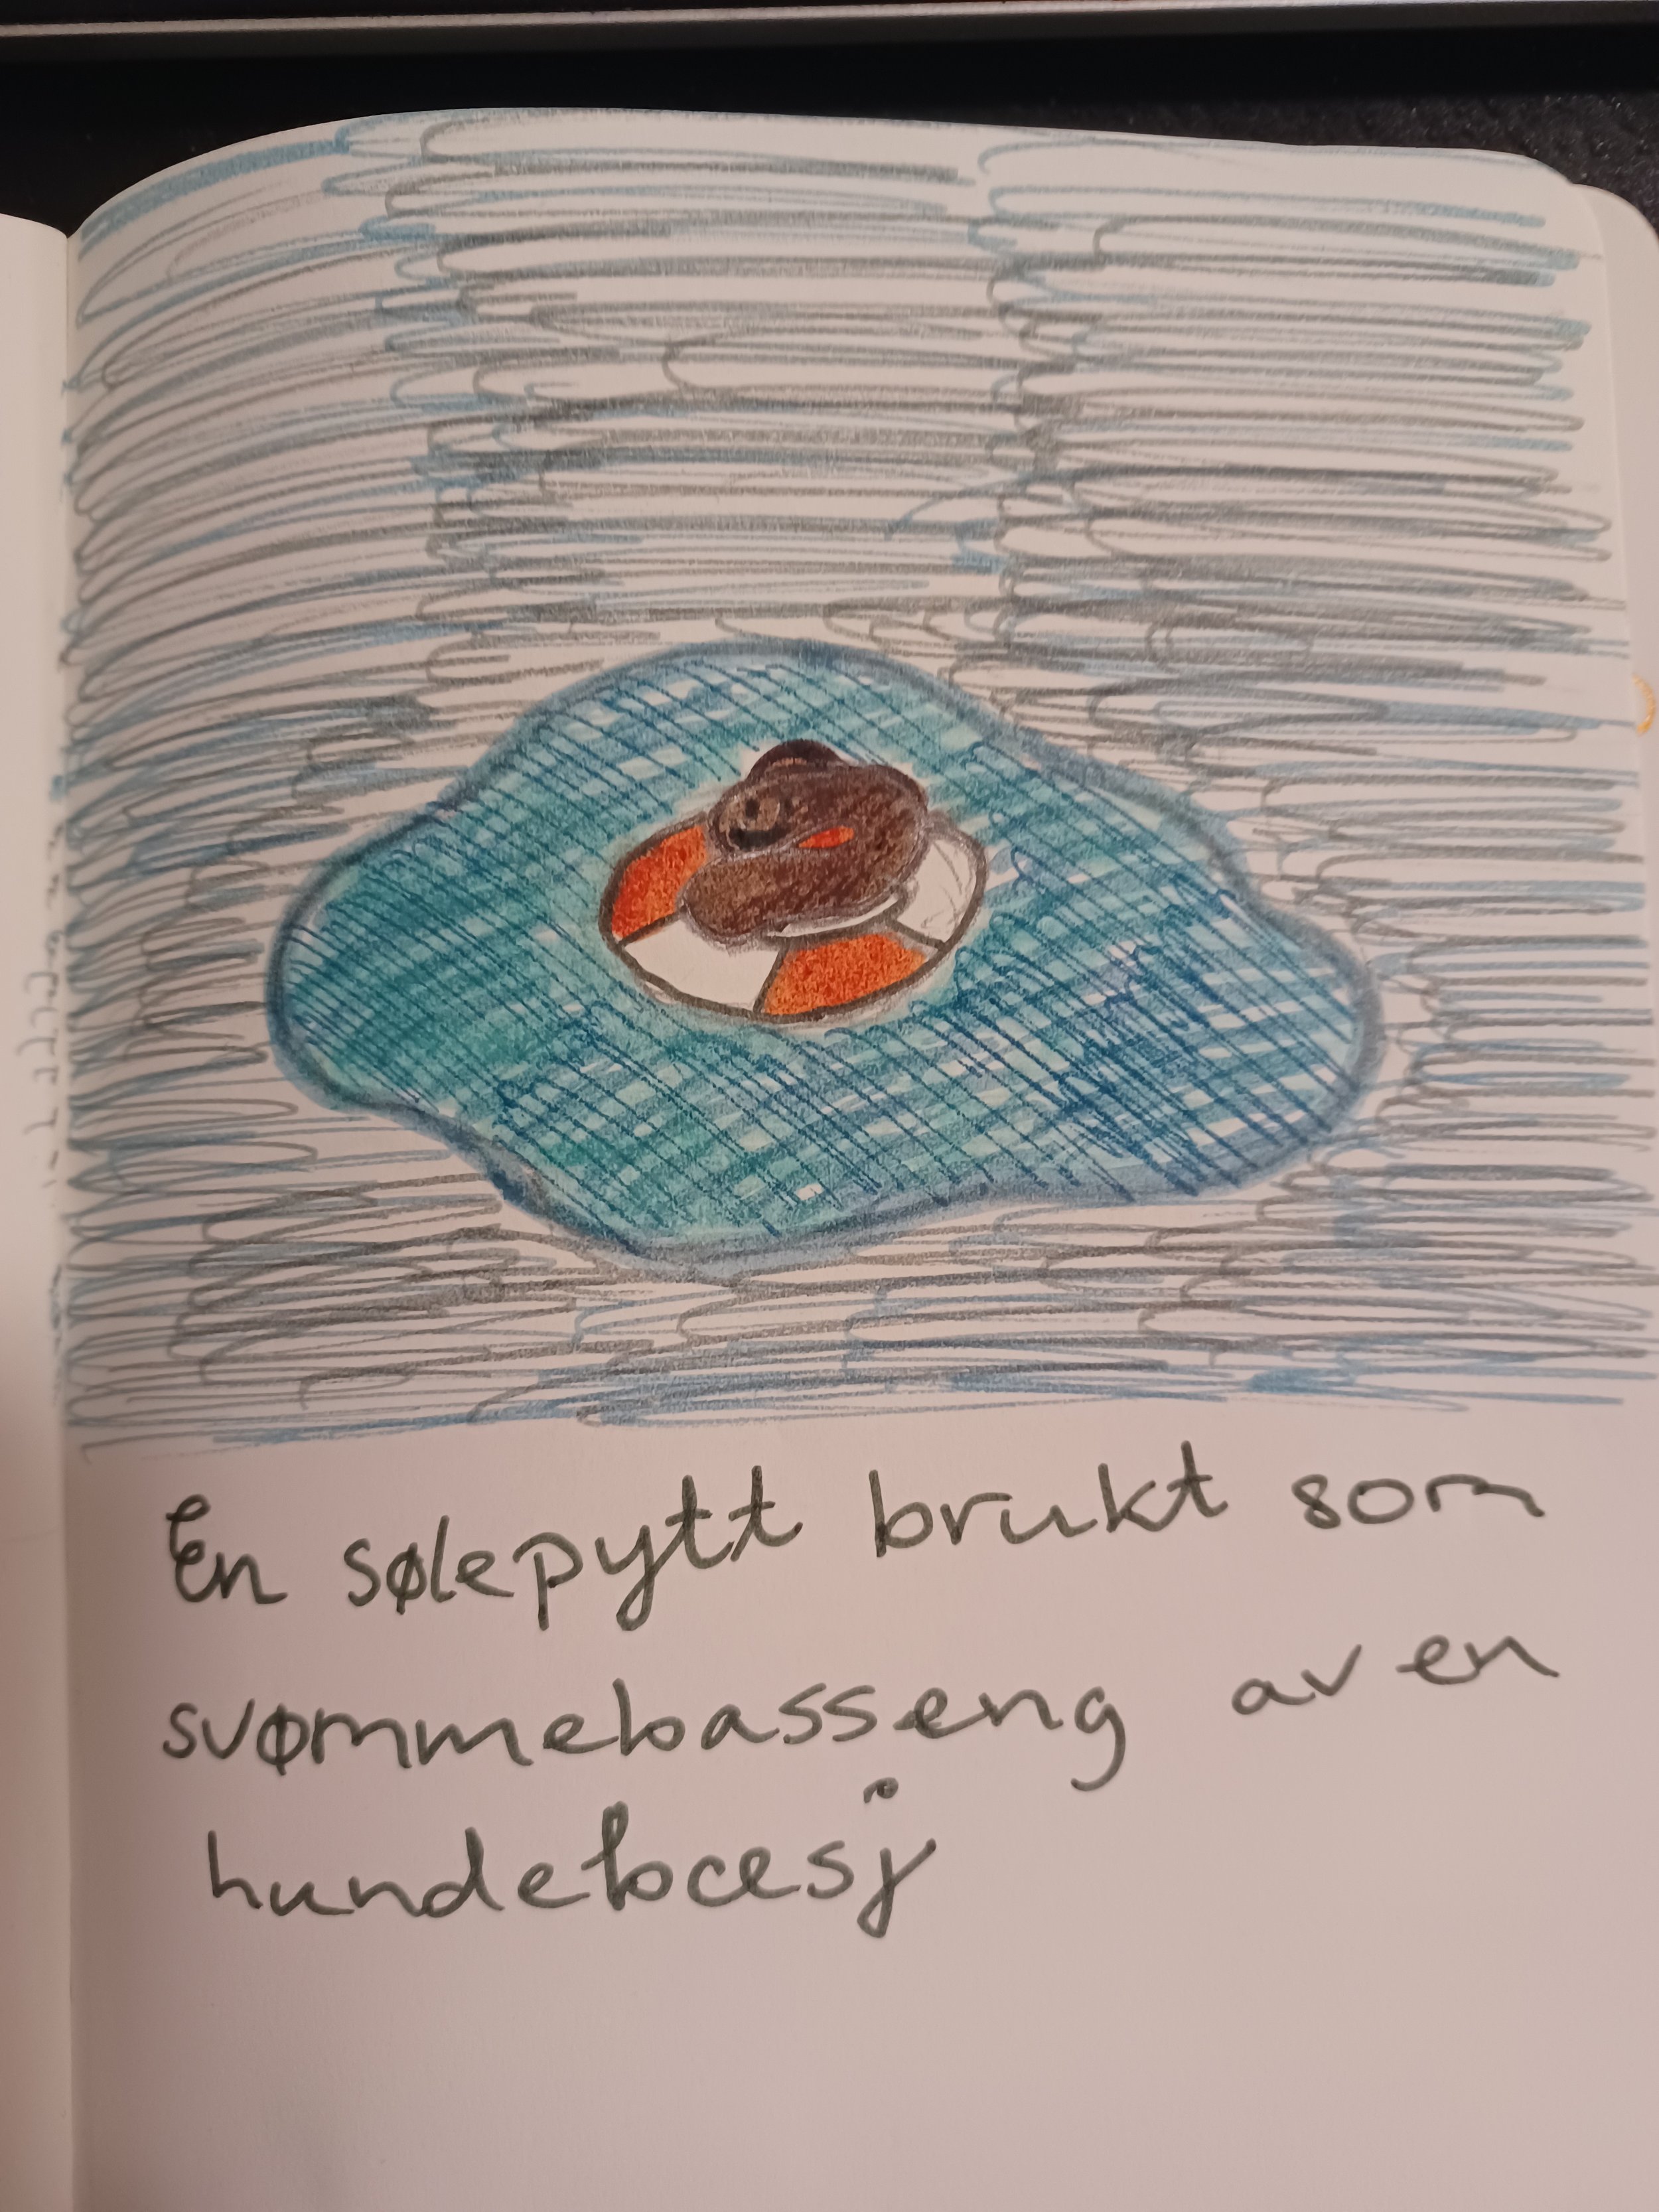 En sølepytt brukt som
svømmebasseng av en
hundebæsj